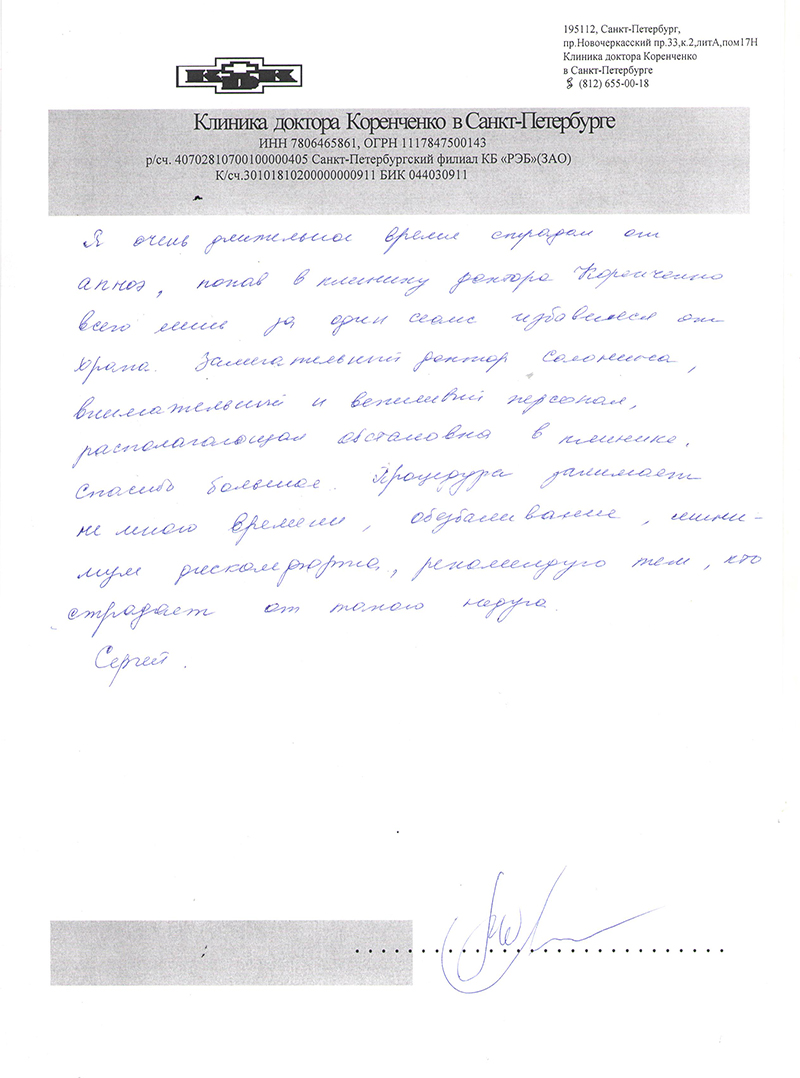 195112, Санкт-Петербург,
пр.Новочеркасский пр.33,к.2,литА,пом17Н
Клиника доктора Коренченко
в Санкт-Петербурге
(812) 655-00-18
КДК
Клиника доктора Коренченко в Санкт-Петербурге
ИНН 7806465861, ОГРН 1117847500143
р/сч. 40702810700100000405 Санкт-Петербургский филиал КБ «РЭБ»(ЗАО)
К/сч.30101810200000000911 БИК 044030911
Я очень длительное время страдал от
апноэ, попав в клинику доктора Коренченко
всего лишь за один сеанс избавился от
храпа. Замечательный доктор Солонина,
внимательный и вежливый персонал,
располагающая обстановка в клинике.
Спасибо большое. Процедура занимает
не много времени, обезбаливание, мини-
мум дискомфорта, рекомендую тем, кто
страдает от такого недуга.
Сергей.